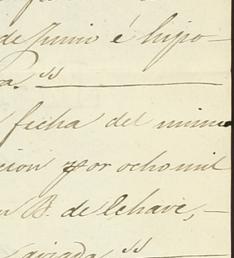 de Junio é hipo-
a. "
ficha del mismo
cion por ocho mil
n B. de Echave, —
aviada "